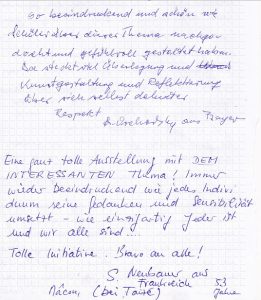 so beeindruckend und schön wie
Schüler über dieses Thema nachge-
dacht und gefühlvoll gestaltet haben.
Da steckt viel Überlegung und
Kunstgestaltung und Reflektierung
über sich selbst dahinter
Respekt
aus
Eine ganz tolle Ausstellung mit DEM
INTERESSANTEN Thema! Immer
wieder Beeindruckend wie jedes Indivi
duum seine Gedanken und Sensibilität
umsetzt - wie einzigartig jeder ist
und wir alle sind.
Tolle Initiative. Bravo an alle!
S. Neubauer aus
Frankreich
Mâcon, (bei Taizé) 53 Jahre